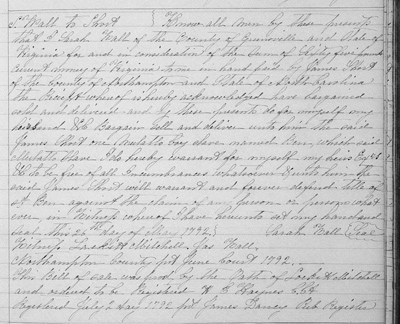 Wall to Short } Know all men by these presents
that I Sarah Wall of the County of Greensville and State of
Virginia for and in consideration of the Sum of Eighty five pounds
Current money of Virginia to me in hand paid by James Short
of the County of Northampton and State of North Carolina
the Receipt whereof is hereby acknowledged have bargained
sold and delivered and by these presents do for myself my
Bargain Sell and deliver unto him the said
James Short one Mulatto boy slave named Ben, which said
Mulatto slave I do hereby warrant for myself my heirs
&c to be free of all Incumbrances whatsoever & unto him the
said James Short will warrant and forever defend title of
sd Ben against the claim of any person or persons what
ever, in Witness whereof I have hereunto set my hand and
seal this 26th day of May 1792. } Sarah Wall {Seal}
Witness Mitchell, Jas Wall
Northampton County June Court 1792
This Bill of sale was provd by the oath of Mitchell
and ordered to be Registered H S Haynes
Registered July 2 day 1792 pr James Pub Register